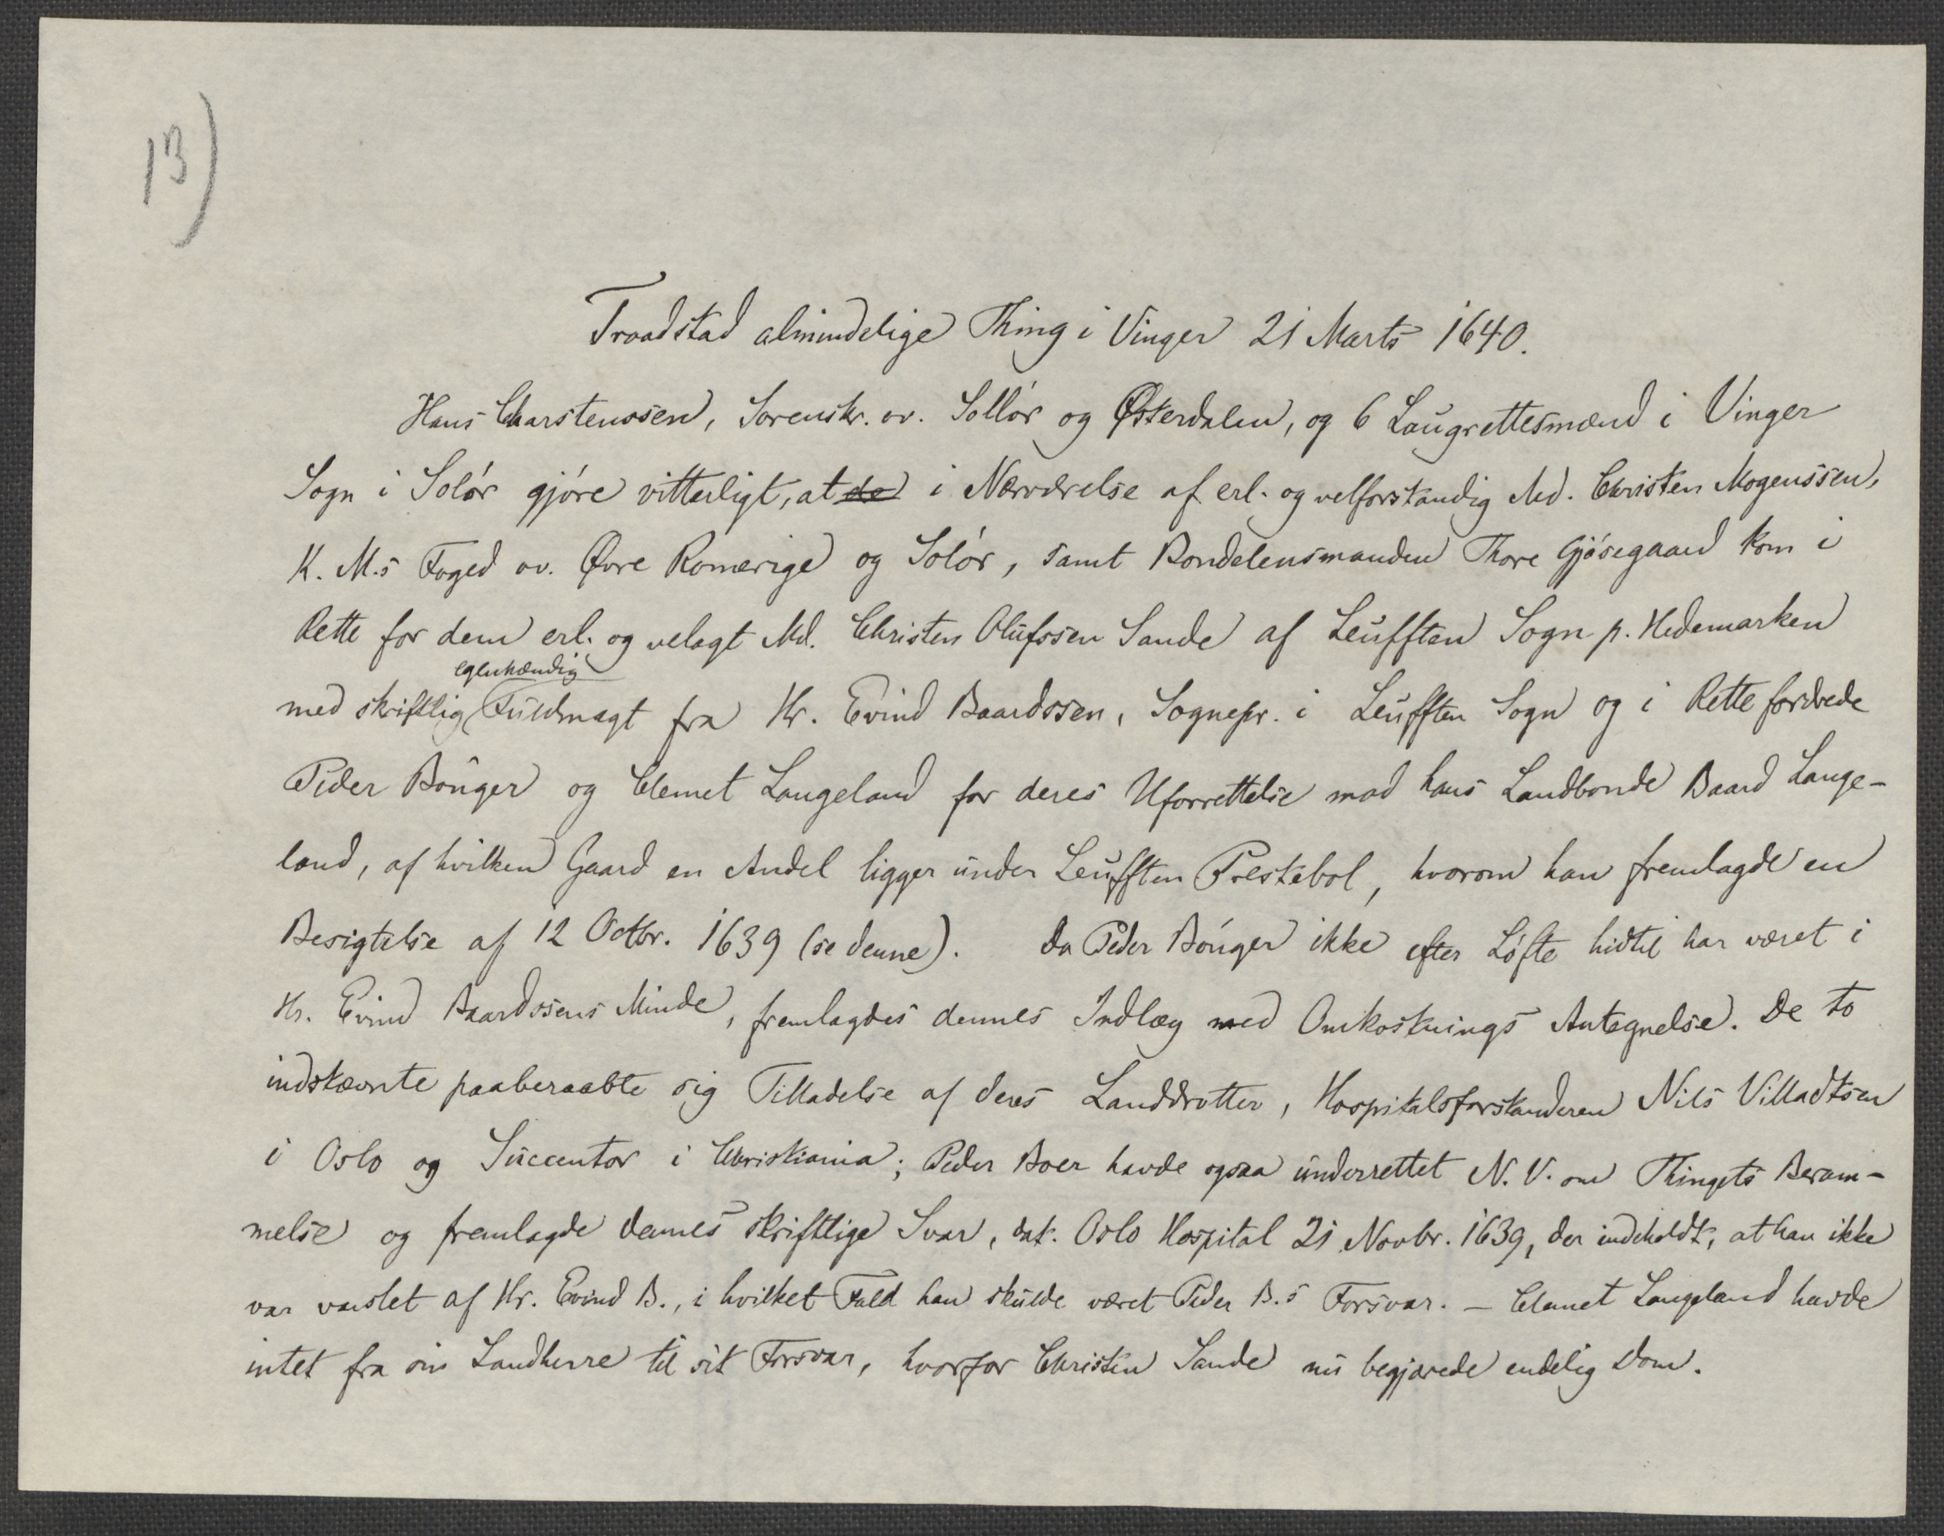 13)
Traadstad almindelige Thing i Vinger 21 Marts 1640.
Hans Charstenssen, Sorenskr. ov. Sollør og Østerdalen, og 6 Laugrettesmænd i Vinger
Sogn i Solør gjøre vitterligt, at de i Nærværelse af erl. og velforstandig Md. Christen Mogenssen,
K. M.s Foged ov. Øvre Romerige og Solør, samt Bondelensmanden Thore Gjøsegaard kom i
Rette for dem erl. og velagt Md. Christen Olufssen Sande af Leufften Sogn p. Hedemarken
egenhændig
med skriftlig Fuldmagt fra Hr. Evind Baardssen, Sognepr. i Leufften Sogn og i Rette fordrede
Peder Bönger og Clemet Langeland for deres Uforrettelse mod hans Landbonde Baard Lange-
land, af hvilken Gaard en Andel ligger under Leufften Prestebol, hvorom han fremlagde en
Besigtelse af 12 Octbr. 1639 (se denne). Da Peder Bönger ikke efter Løfte hidtil har været i
Hr. Evind Baardssens Minde, fremlagdes dennes Indlæg med Omkostnings Antegnelse. De to
indstævnte paaberaabte sig Tilladelse af deres Landdrotter, Hospitalsforstanderen Nils Villadtsen
i Oslo og Succentor i Christiania; Peder Boer havde ogsaa underrettet N. V. om Thingets Beram-
melse og fremlagde dennes skriftlige Svar, dat. Oslo Hospital 21 Novbr. 1639, der indeholdt, at han ikke
var varslet af Hr. Evind B., i hvilket Fald han skulde været Peder B.s Forsvar. - Clemet Langeland havde
intet fra sin Landherre til sit Forsvar, hvorfor Christen Sande nu begjærede endelig Dom.